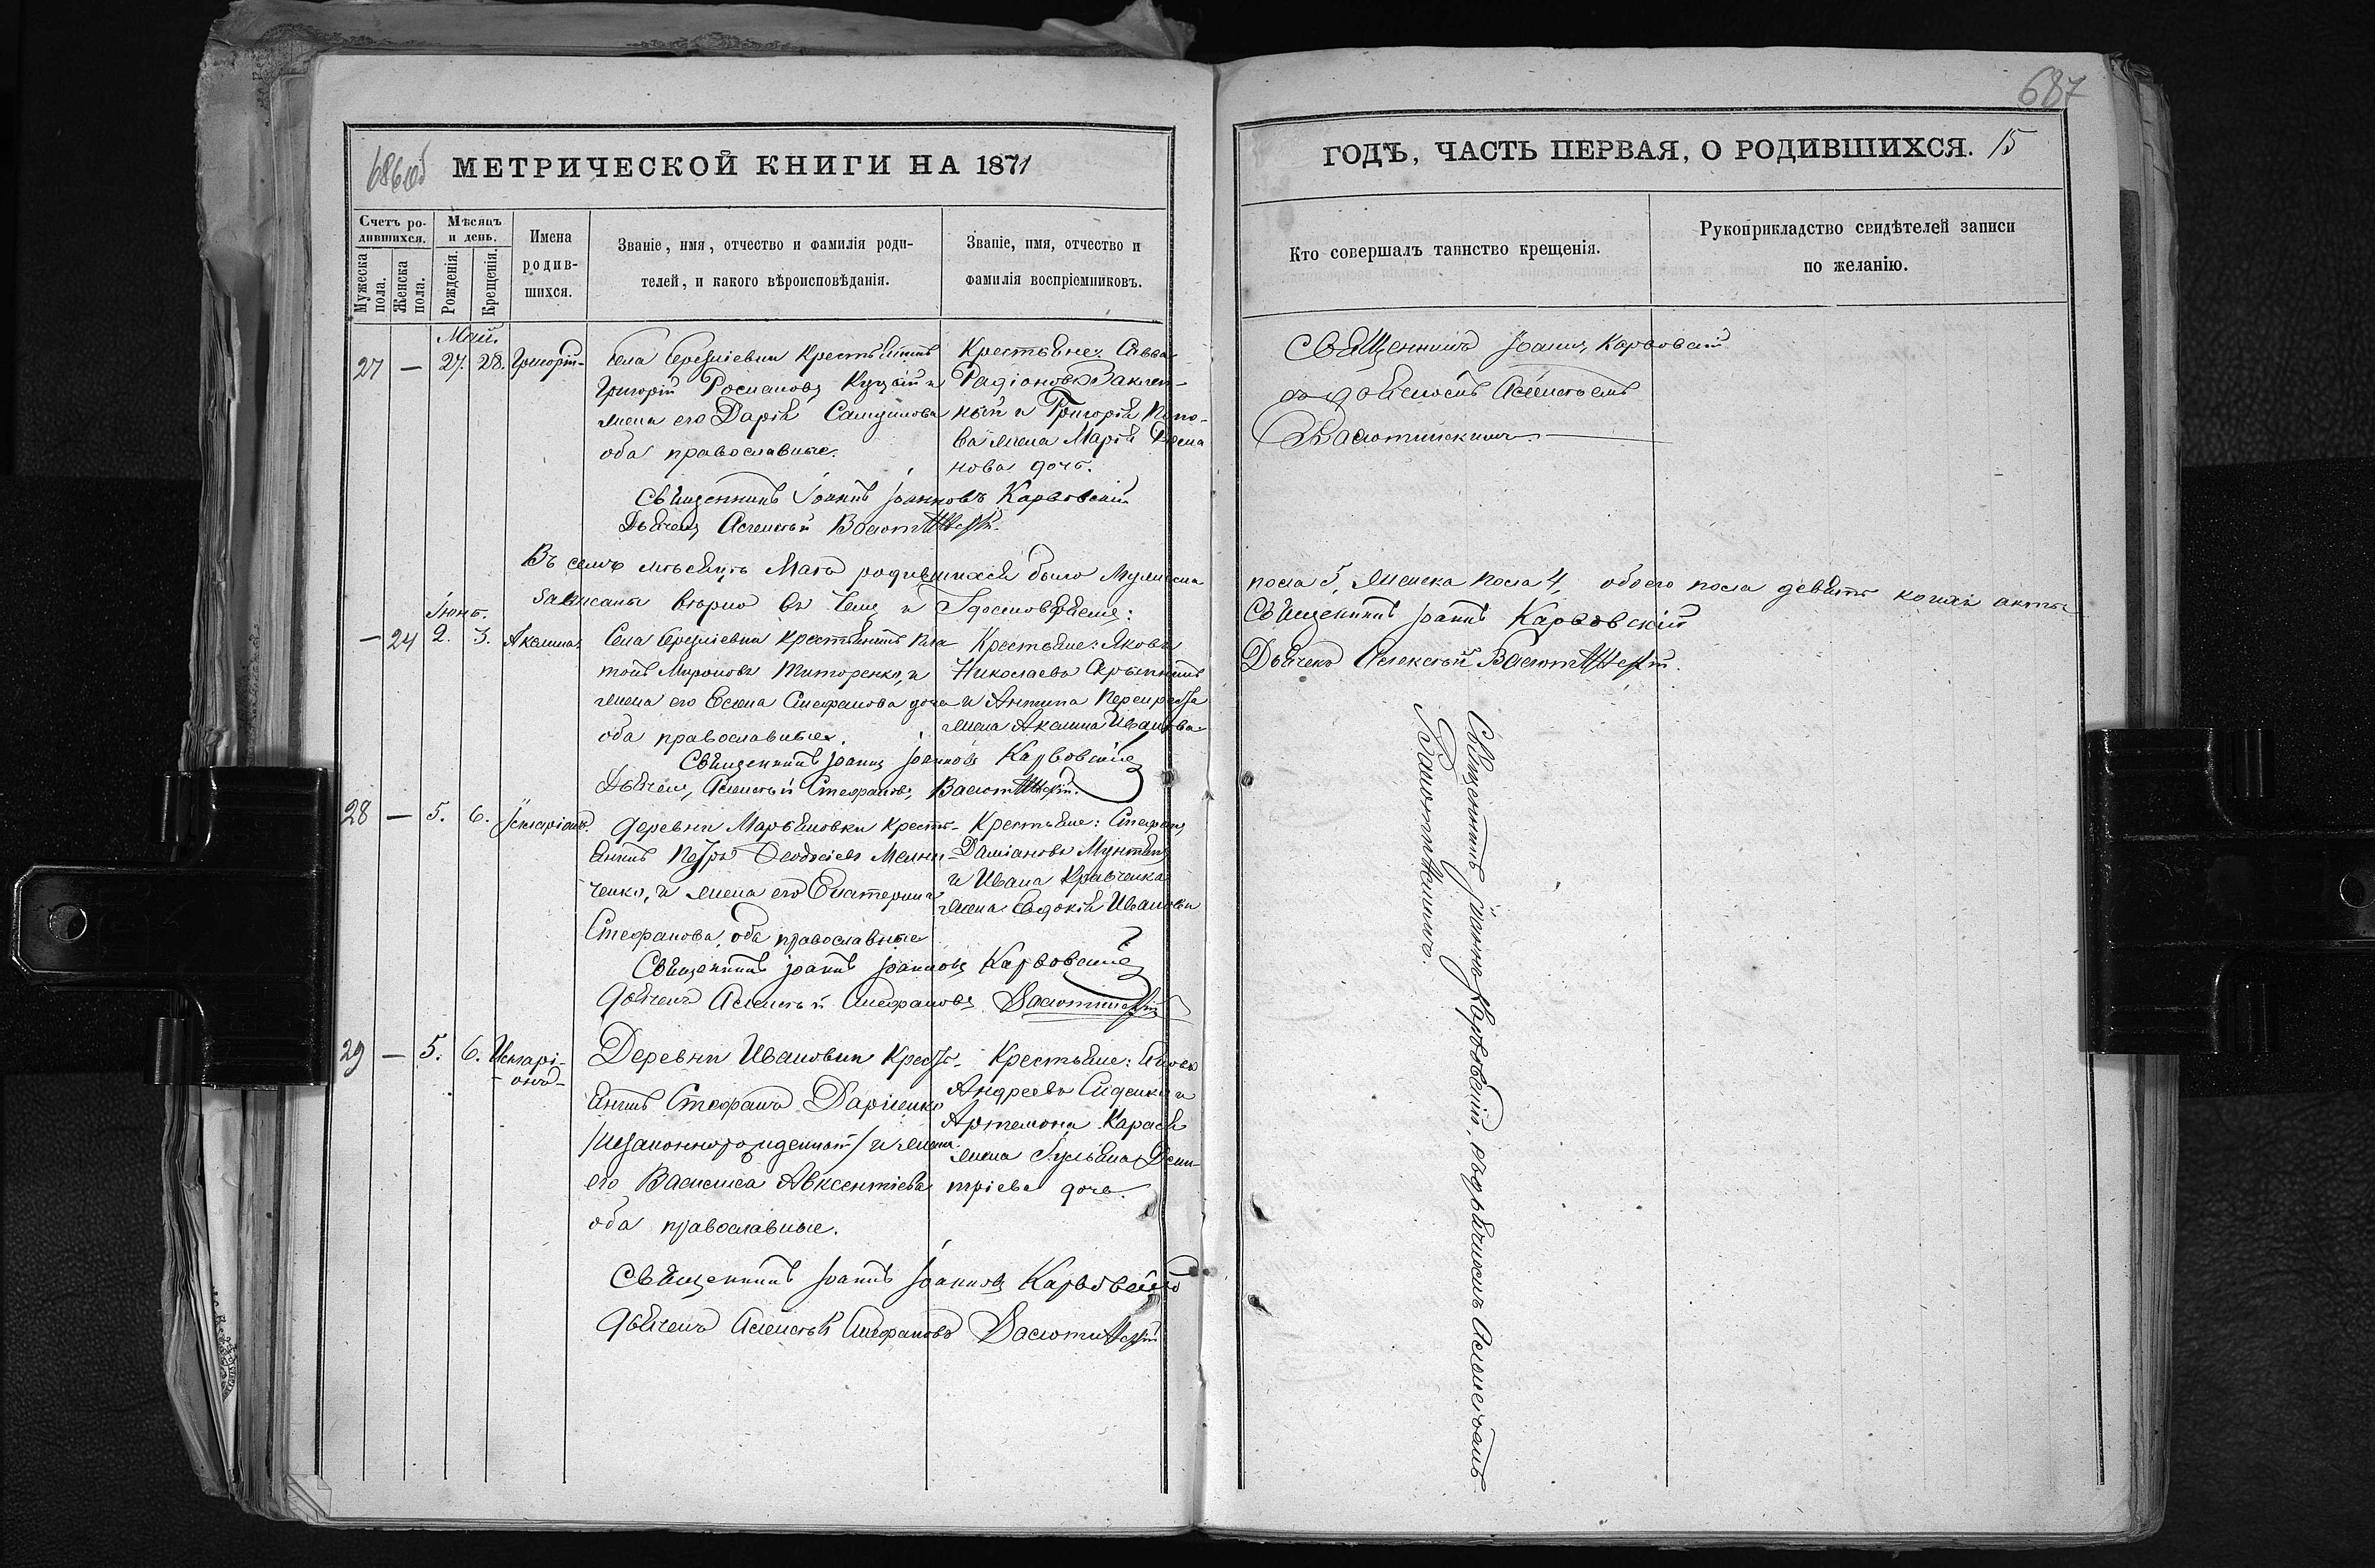 686об
МЕТРИЧЕСКОЙ КНИГИ НА 1871
Счетъ ро-
дившихся.
Мѣсяцъ
и день.
Мужеска
пола.
Женска
пола.
Рожденія.
Крещенія.
Имена
родив-
шихся.
Званіе, имя, отчество и фамилія роди-
телей, и какого вѣроисповѣданія.
Званіе, имя, отчество и
фамилія воспріемниковъ.
Май.
27 — 27. 28. Григорій-
Села Крестьянинъ
Григорій Романовъ Куцый и
жена его Дарія
оба православные.
Крестьяне: Савва
Радіоновъ
ный и Григорія Попо-
ва жена Марія Рома
нова дочь.
Священникъ Іоаннъ Іоанновъ Карвовскій
Дьячекъ Алексѣй
Въ семъ мѣсяцѣ Маѣ родившихся было мужеска
записаны вѣрно въ чемъ и удостовѣряемъ:
Іюнь.
— 24 2. 3. Акилина
Села крестьянинъ Пла
тонъ Мироновъ Титоренко, и
жена его Елена Стефанова дочь
оба православные.
Крестьяне: Яковъ
Николаевъ
и Антипа
жена Акилина Иванова
Священникъ Іоаннъ Іоанновъ Карвовскій
Дьячекъ, Алексѣй Стефановъ,
28 — 5. 6. Іеларіонъ.
деревни Марьяновки кресть-
янинъ Петръ Ѳеодосіевъ Мельни-
ченко, и жена его Екатерина
Стефанова, оба православные
Крестьяне: Стефанъ
Даміановъ Мунтянъ
и Ивана Кравченка
жена Евдокія Иванова
Священникъ Іоаннъ Іоанновъ Карвовскій
Дьячекъ Алексѣй Стефановъ
29 — 5. 6. Иларі-
-онъ-
Деревни Ивановки Кресть-
янинъ Стефанъ
/незаконнорожденный/ и жена
его Василиса Авксентіева
оба православные.
Крестьяне: Яковъ
Андреевъ Сиденко и
Артемона
жена Іуліана Дими-
тріева дочь.
Священникъ Іоаннъ Іоанновъ Карвовскій
Дьячекъ Алексѣй Стефановъ
687
ГОДЪ, ЧАСТЬ ПЕРВАЯ, О РОДИВШИХСЯ. 15
Кто совершалъ таинство крещенія.
Рукоприкладство свидѣтелей записи
по желанію.
Священникъ Іоаннъ Карвовскій
съ дьячкомъ Алексѣемъ
пола 5, женска пола 4, обоего пола девять коихъ акты
Священникъ Іоаннъ Карвовскій
Дьячекъ Алексѣй
Священникъ Іоаннъ Карвовскій, съ дьячкомъ Алексѣемъ